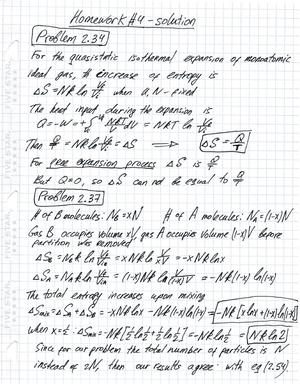 Homework #4 - solution
Problem 2.34
For the quasistatic isothermal expansion of monoatomic
ideal gas, the increase of entropy is
ΔS = Nk ln Vf/Vi when U, N - fixed
The heat input during the expansion is
Q = -W = + ∫ NkT/V dV = NkT ln Vf/Vi
Then Q/T = Nk ln Vf/Vi = ΔS ⟹ ΔS = Q/T
For free expansion process ΔS is
But Q=0, so ΔS can not be equal to Q/T
Problem 2.37
# of B molecules: N_B = xN # of A molecules: N_A = (1-x)N
Gas B occupies volume xV, gas A occupies volume (1-x)V before
partition was removed
ΔS_B = N_B k ln Vf/Vi = xNk ln V/xV = -xNk ln x
ΔS_A = N_A k ln Vf/Vi = (1-x)Nk ln V/(1-x)V = -Nk(1-x) ln(1-x)
The total entropy increases upon mixing
ΔS_mix = ΔS_A + ΔS_B = -xNk ln x - Nk(1-x) ln(1-x) = -Nk [x ln x + (1-x) ln(1-x)]
when x = 1/2: ΔS_mix = -Nk [1/2 ln 1/2 + 1/2 ln 1/2] = -Nk ln 1/2 = Nk ln 2
Since for our problem the total number of particles is N
instead of 2N, then our results agree with eq (2.54)